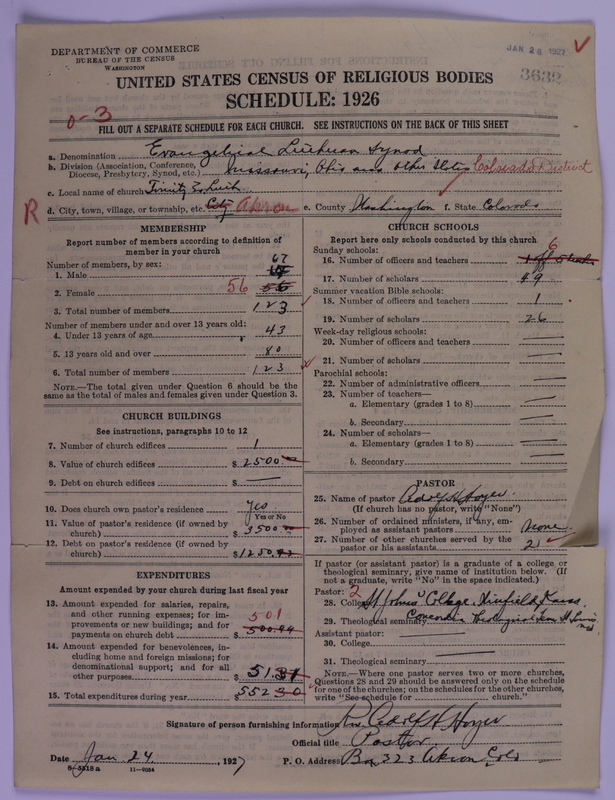 DEPARTMENT OF COMMERCE
BUREAU OF THE CENSUS
WASHINGTON
JAN 28 1927
3632
UNITED STATES CENSUS OF RELIGIOUS BODIES
SCHEDULE: 1926
0-3
FILL OUT A SEPARATE SCHEDULE FOR EACH CHURCH. SEE INSTRUCTIONS ON THE BACK OF THIS SHEET
a. Denomination Evangelical Lutheran Synod
b. Division (Association, Conference, Diocese, Presbytery, Synod, etc.) Missouri, Ohio and other States Colorado District
c. Local name of church Trinity Ev Luth
R d. City, town, village, or township, etc. City Akron e. County Washington f. State Colorado
MEMBERSHIP
Report number of members according to definition of
member in your church
Number of members, by sex:
1. Male 67
2. Female 56 56
3. Total number of members 123
Number of members under and over 13 years old:
4. Under 13 years of age 43
5. 13 years old and over 80
6. Total number of members 123
NOTE.—The total given under Question 6 should be the
same as the total of males and females given under Question 3.
CHURCH BUILDINGS
See instructions, paragraphs 10 to 12
7. Number of church edifices 1
8. Value of church edifices $2500
9. Debt on church edifices $ —
10. Does church own pastor's residence yes
Yes or No
11. Value of pastor's residence (if owned by
church) $3500
12. Debt on pastor's residence (if owned by
church) $1250.
EXPENDITURES
Amount expended by your church during last fiscal year
13. Amount expended for salaries, repairs,
and other running expenses; for im-
provements or new buildings; and for
payments on church debt $ 501 500.99
14. Amount expended for benevolences,
including home and foreign missions; for
denominational support; and for all
other purposes $51.31
15. Total expenditures during year $552.30
CHURCH SCHOOLS
Report here only schools conducted by this church
Sunday schools:
16. Number of officers and teachers 6
17. Number of scholars 49
Summer vacation Bible schools:
18. Number of officers and teachers 1
19. Number of scholars 26
Week-day religious schools:
20. Number of officers and teachers —
21. Number of scholars —
Parochial schools:
22. Number of administrative officers —
23. Number of teachers—
a. Elementary (grades 1 to 8) —
b. Secondary —
24. Number of scholars—
a. Elementary (grades 1 to 8) —
b. Secondary —
PASTOR
25. Name of pastor Adolf H Hoyer.
(If church has no pastor, write "None")
26. Number of ordained ministers, if any, em-
ployed as assistant pastors none
27. Number of other churches served by the
pastor or his assistants 2
If pastor (or assistant pastor) is a graduate of a college or
theological seminary, give name of institution below. (If
not a graduate, write "No" in the space indicated.)
Pastor: 2
28. College St Johns College, Winfield Kans.
29. Theological seminary Concordia Theological Sem St Louis Mo
Assistant pastor:
30. College —
31. Theological seminary —
NOTE.—Where one pastor serves two or more churches,
Questions 28 and 29 should be answered only on the schedule
for one of the churches; on the schedules for the other churches,
write "See schedule for church."
Signature of person furnishing information Adolf H Hoyer
Official title Pastor
Date Jan 24, 1927 P. O. Address Box 323 Akron Colo
8-5518a 11—9054